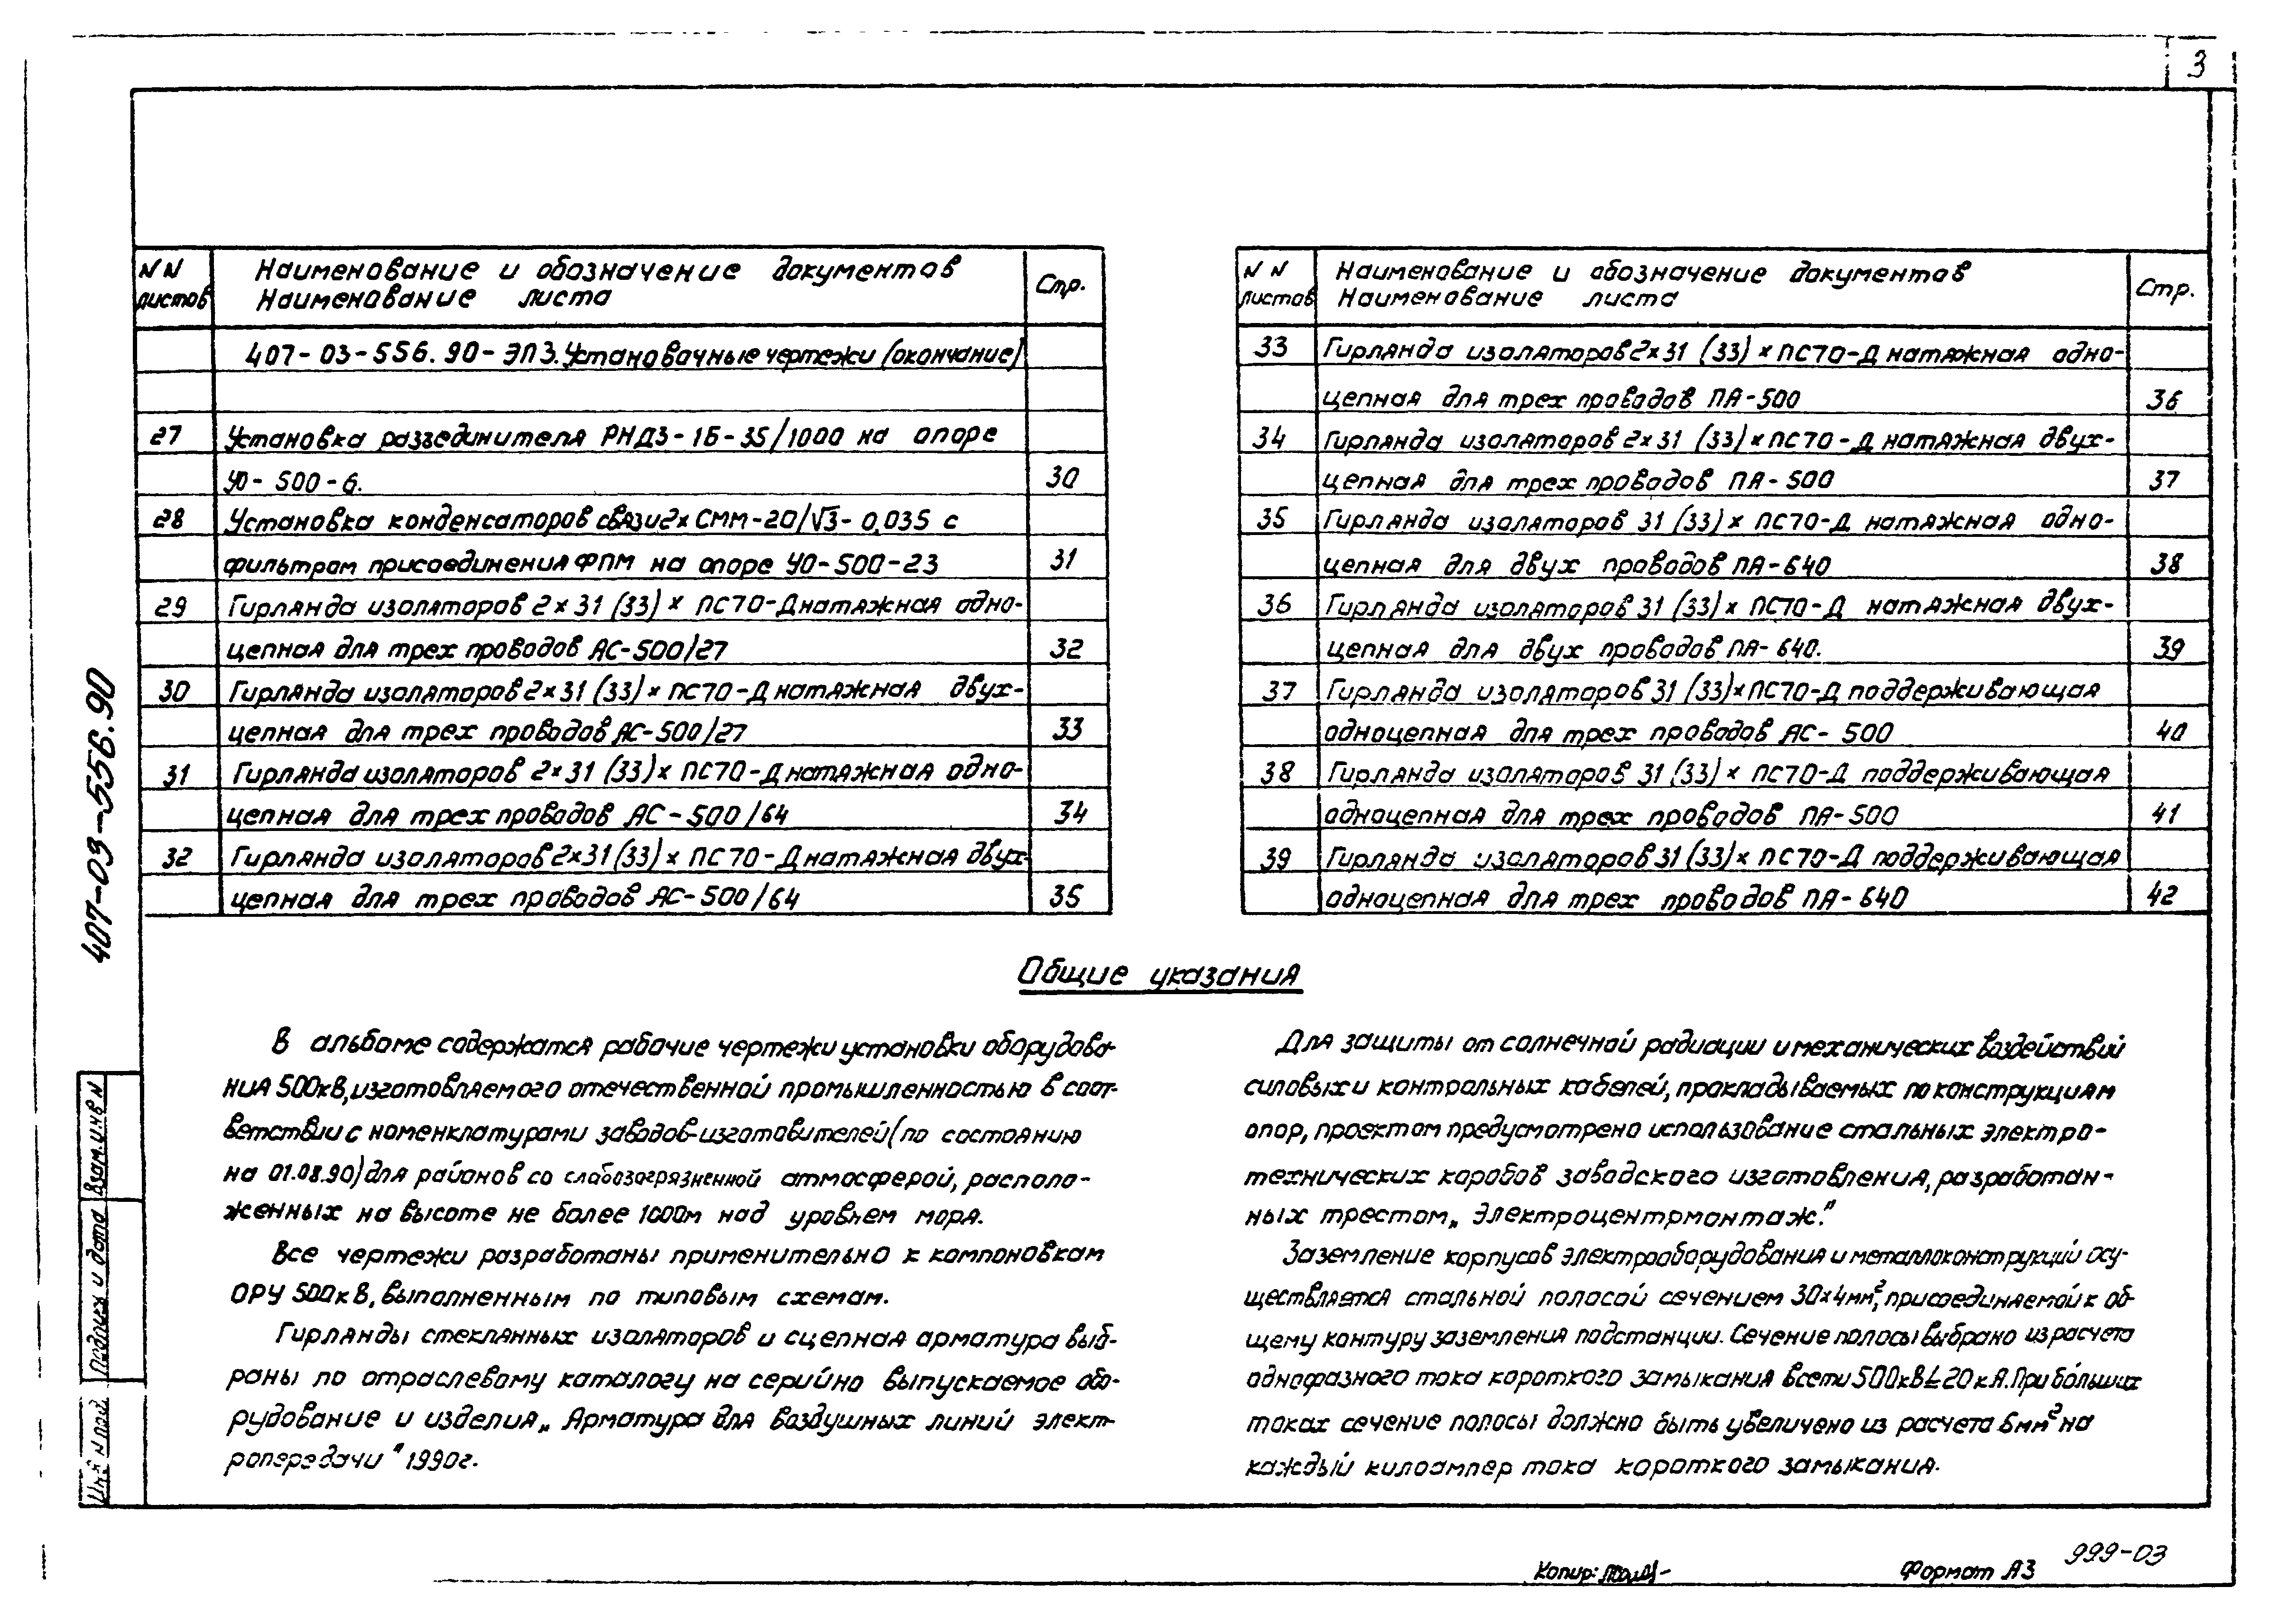 3
NN листов Наименование и обозначение документов Наименование листа Стр.
407-03-556.90-ЭП3. Установочные чертежи (окончание)
27 Установка разъединителя РНДЗ-1Б-35/1000 на опоре
УО-500-6. 30
28 Установка конденсаторов связи 2х СММ-20/√3-0,035 с
фильтром присоединения ФПМ на опоре УО-500-23 31
29 Гирлянда изоляторов 2х31 (33)х ПС70-Д натяжная одно-
цепная для трех проводов АС-500/27 32
30 Гирлянда изоляторов 2х31 (33)х ПС70-Д натяжная двух-
цепная для трех проводов АС-500/27 33
31 Гирлянда изоляторов 2х31 (33)х ПС70-Д натяжная одно-
цепная для трех проводов АС-500/64 34
32 Гирлянда изоляторов 2х31 (33)х ПС70-Д натяжная двух-
цепная для трех проводов АС-500/64 35
NN листов Наименование и обозначение документов Наименование листа Стр.
33 Гирлянда изоляторов 2х31 (33)х ПС70-Д натяжная одно-
цепная для трех проводов ПА-500 36
34 Гирлянда изоляторов 2х31 (33)х ПС70-Д натяжная двух-
цепная для трех проводов ПА-500 37
35 Гирлянда изоляторов 31 (33)х ПС70-Д натяжная одно-
цепная для двух проводов ПА-640 38
36 Гирлянда изоляторов 31 (33)х ПС70-Д натяжная двух-
цепная для двух проводов ПА-640. 39
37 Гирлянда изоляторов 31 (33)х ПС70-Д поддерживающая
одноцепная для трех проводов АС-500 40
38 Гирлянда изоляторов 31 (33)х ПС70-Д поддерживающая
одноцепная для трех проводов ПА-500 41
39 Гирлянда изоляторов 31 (33)х ПС70-Д поддерживающая
одноцепная для трех проводов ПА-640 42
407-03-556.90
Общие указания
В альбоме содержатся рабочие чертежи установки оборудова-
ния 500кВ, изготовляемого отечественной промышленностью в соот-
ветствии с номенклатурами заводов-изготовителей (по состоянию
на 01.08.90) для районов со слабозагрязненной атмосферой, располо-
женных на высоте не более 1000м над уровнем моря.
Все чертежи разработаны применительно к компоновкам
ОРУ 500кВ, выполненным по типовым схемам.
Гирлянды стеклянных изоляторов и сцепная арматура выб-
раны по отраслевому каталогу на серийно выпускаемое обо-
рудование и изделия „Арматура для воздушных линий элект-
ропередачи" 1990г.
Для защиты от солнечной радиации и механических воздействий
силовых и контрольных кабелей, прокладываемых по конструкциям
опор, проектом предусмотрено использование стальных электро-
технических коробов заводского изготовления, разработан-
ных трестом „Электроцентрмонтаж."
Заземление корпусов электрооборудования и металлоконструкций осу-
ществляется стальной полосой сечением 30х4мм², присоединяемой к об-
щему контуру заземления подстанции. Сечение полосы выбрано из расчета
однофазного тока короткого замыкания в сети 500кВ ≤ 20 кА. При больших
токах сечение полосы должно быть увеличено из расчета 6мм² на
каждый килоампер тока короткого замыкания.
Взам. инв N
Подпись и дата
Инв N подл.
Копир:
Формат А3
999-03